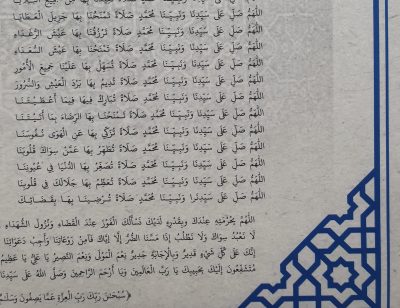 اللَّهُمَّ صَلِّ عَلَى سَيِّدِنَا وَنَبِيِّنَا مُحَمَّدٍ صَلَاةً تَمْنَحُنَا بِهَا جَزِيلَ الْعَطَايَا
اللَّهُمَّ صَلِّ عَلَى سَيِّدِنَا وَنَبِيِّنَا مُحَمَّدٍ صَلَاةً تَرْزُقُنَا بِهَا عَيْشَ الرُّغَدَاءِ
اللَّهُمَّ صَلِّ عَلَى سَيِّدِنَا وَنَبِيِّنَا مُحَمَّدٍ صَلَاةً تَمْنَحُنَا بِهَا عَيْشَ السُّعَدَاءِ
اللَّهُمَّ صَلِّ عَلَى سَيِّدِنَا وَنَبِيِّنَا مُحَمَّدٍ صَلَاةً تُسَهِّلُ بِهَا عَلَيْنَا جَمِيعَ الْأُمُورِ
اللَّهُمَّ صَلِّ عَلَى سَيِّدِنَا وَنَبِيِّنَا مُحَمَّدٍ صَلَاةً تُدِيمُ بِهَا بَرْدَ الْعَيْشِ وَالسُّرُورِ
اللَّهُمَّ صَلِّ عَلَى سَيِّدِنَا وَنَبِيِّنَا مُحَمَّدٍ صَلَاةً تُبَارِكُ بِهَا فِيمَا أَعْطَيْتَنَا
اللَّهُمَّ صَلِّ عَلَى سَيِّدِنَا وَنَبِيِّنَا مُحَمَّدٍ صَلَاةً تَمْنَحُنَا بِهَا الرِّضَاءَ بِمَا آتَيْتَنَا
اللَّهُمَّ صَلِّ عَلَى سَيِّدِنَا وَنَبِيِّنَا مُحَمَّدٍ صَلَاةً تُزَكِّي بِهَا عَنِ الْهَوَى نُفُوسَنَا
اللَّهُمَّ صَلِّ عَلَى سَيِّدِنَا وَنَبِيِّنَا مُحَمَّدٍ صَلَاةً تُطَهِّرُ بِهَا عَمَّنْ سِوَاكَ قُلُوبَنَا
اللَّهُمَّ صَلِّ عَلَى سَيِّدِنَا وَنَبِيِّنَا مُحَمَّدٍ صَلَاةً تُصَغِّرُ بِهَا الدُّنْيَا فِي عُيُونِنَا
اللَّهُمَّ صَلِّ عَلَى سَيِّدِنَا وَنَبِيِّنَا مُحَمَّدٍ صَلَاةً تُعَظِّمُ بِهَا جَلَالَكَ فِي قُلُوبِنَا
اللَّهُمَّ صَلِّ عَلَى سَيِّدِنَا وَنَبِيِّنَا مُحَمَّدٍ صَلَاةً تُرْضِينَا بِهَا بِقَضَائِكَ
اللَّهُمَّ بِحُرْمَتِهِ عِنْدَكَ وَبِقَدْرِهِ لَدَيْكَ نَسْأَلُكَ الْفَوْزَ عِنْدَ الْقَضَاءِ وَنُزُولَ الشُّهَدَاءِ
لَا نَعْبُدُ سِوَاكَ وَلَا نَطْلُبُ إِذَا مَسَّنَا الضُّرُّ إِلَّا إِيَّاكَ فَآمِنْ رَوْعَاتِنَا وَأَجِبْ دَعَوَاتِنَا
إِنَّكَ عَلَى كُلِّ شَيْءٍ قَدِيرٌ وَبِالْإِجَابَةِ جَدِيرٌ نِعْمَ الْمَوْلَى وَنِعْمَ النَّصِيرُ يَا عَلِيُّ يَا عَظِيمُ
مُتَشَفِّعُونَ إِلَيْكَ بِحَبِيبِكَ يَا رَبَّ الْعَالَمِينَ وَيَا أَرْحَمَ الرَّاحِمِينَ وَصَلَّى اللهُ عَلَى سَيِّدِنَا
﴿سُبْحَنَ رَبِّكَ رَبِّ الْعِزَّةِ عَمَّا يَصِفُونَ وَسَلَمٌ